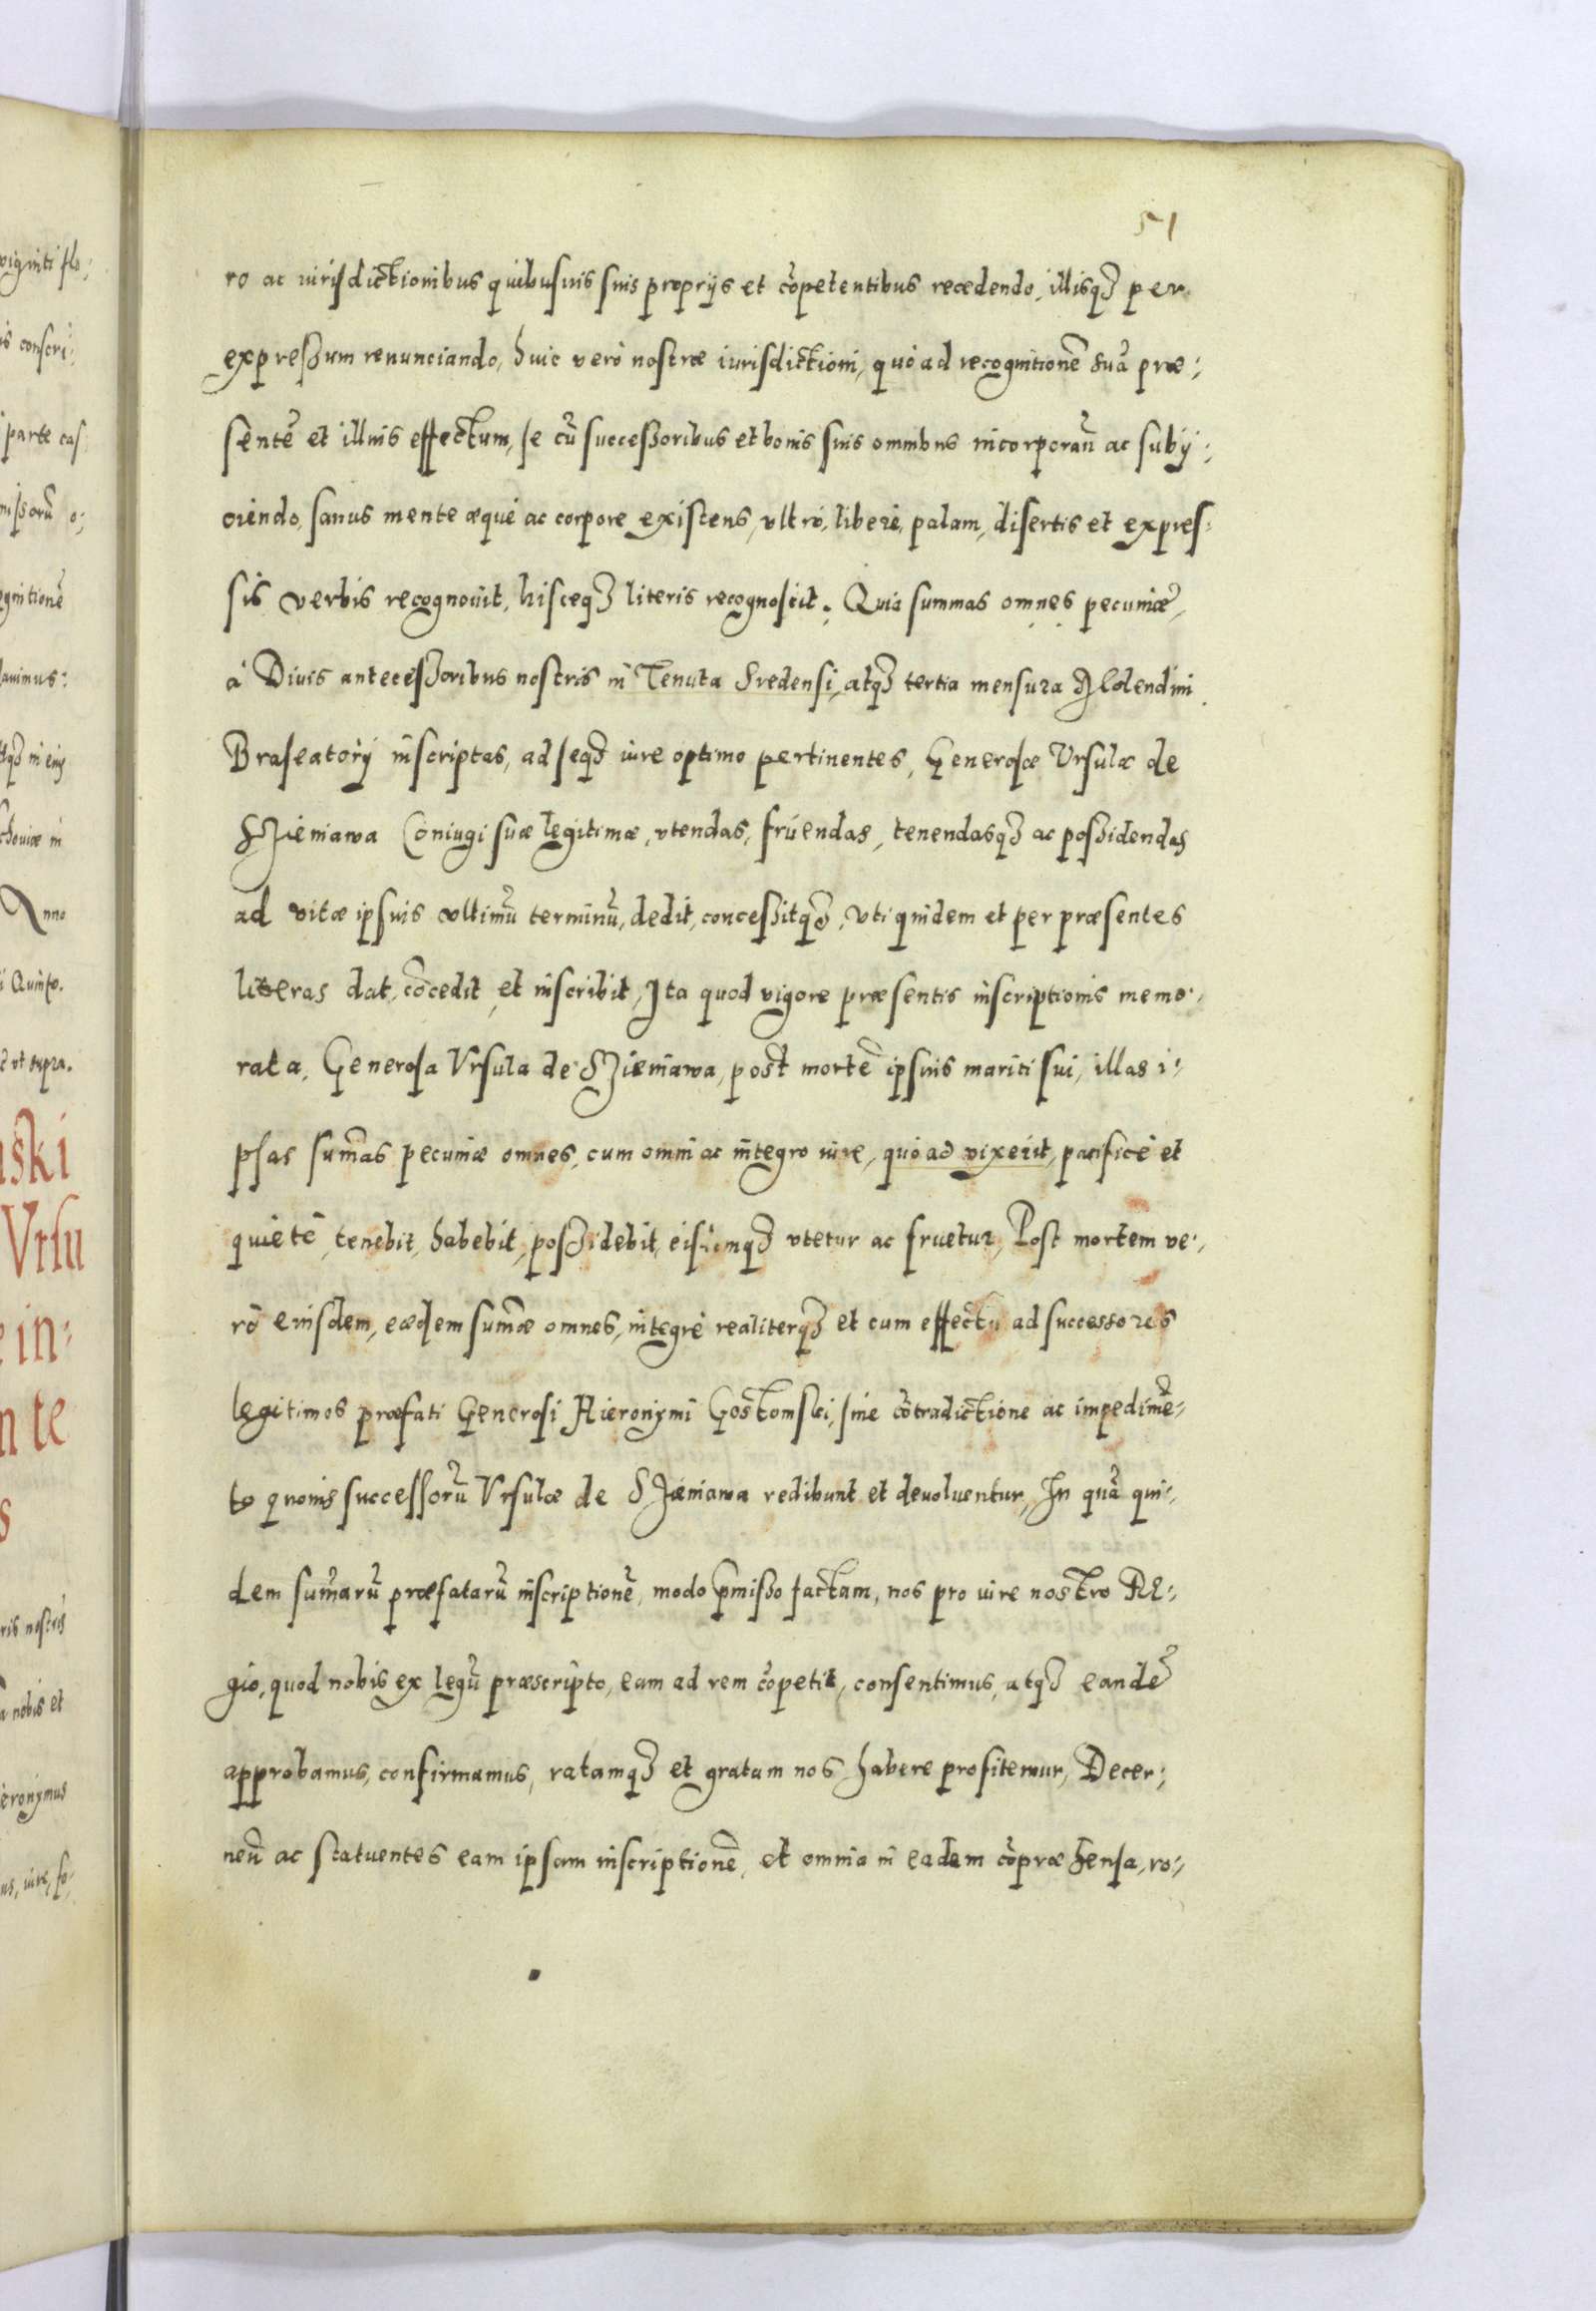 51
ro ac iurisdictionibus quibusuis suis proprijs et cõpetentibus recedendo, illisq́ꝫ per
expressum renunciando, huic verò nostræ iurisdictioni, quo ad recognitionẽ suã præ:
sentẽ et illius effectum, se cũ successoribus et bonis suis omnibus incorporañ ac subij:
ciendo, sanus mente æque ac corpore existens, vltrò, liberè, palam, disertis et expres:
sis verbis recognouit, hisceqꝫ literis recognoscit: Quia summas omnes pecuniæ,
à Diuis antecessoribus nostris in Tenuta Sredensi, atqꝫ tertia mensura Molendini
Braseatorij inscriptas, ad seqꝫ iure optimo pertinentes, Generosæ Vrsulæ de
Szieniawa Coniugi suæ legitimæ, vtendas, fruendas, tenendasqꝫ ac possidendas
ad vitæ ipsius vltimũ terminũ, dedit, concessitqꝫ, vti quidem et per præsentes
literas dat, cõcedit, et inscribit, Ita quod vigore præsentis inscriptionis memo:
rata, Generosa Vrsula de Szieniawa, post mortẽ ipsius mariti sui, illas i:
psas sum̃as pecuniæ omnes, cum omni ac integro iure, quo ad vixerit, pacificè et
quietè, tenebit, habebit, possidebit, eisdemqꝫ vtetur ac fruetur, Post mortem ve:
rò eiusdem, eædem sum̃æ omnes, integrè realiterqꝫ et cum effectu ad successores
legitimos præfati Generosi Hieronymi Gostomski, sine cõtradictione ac impedimẽ:
to quouis successorũ Vrsulæ de Szieniawa redibunt et deuoluentur, In quã qui:
dem sum̃arũ præfatarũ inscriptionẽ, modo p̃misso factam, nos pro iure nostro Re:
gio, quod nobis ex legũ præscripto, eam ad rem cõpetit, consentimus, atqꝫ eandẽ
approbamus, confirmamus, ratamqꝫ et gratam nos habere profitemur, Decer:
neñ ac statuentes eam ipsam inscriptionẽ, et omnia in eadem cõpræhensa, ro: